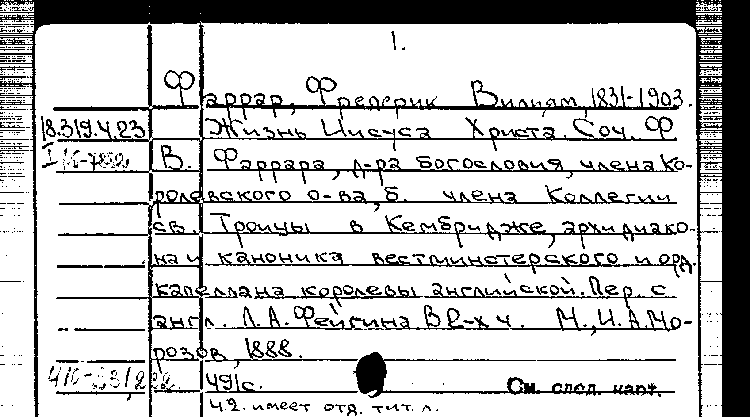 1.
Фаррар, Фредерик Вилиам, 1831-1903.
18.319.4.23 Жизнь Иисуса Христа. Соч. Ф
В. Фаррара, д-ра богословия, члена Ко-
ролевского о-ва, б. члена Коллегии
св. Троицы в Кембридже, архидиако-
на и каноника вестминстерского и орд.
капеллана королевы английской. Пер. с
англ. Л.А. Фейгина. В 2-х ч. М., И.А. Мо-
розов, 1888.
491с. См. след. карт.
Ч.2. имеет отд. тит. л.